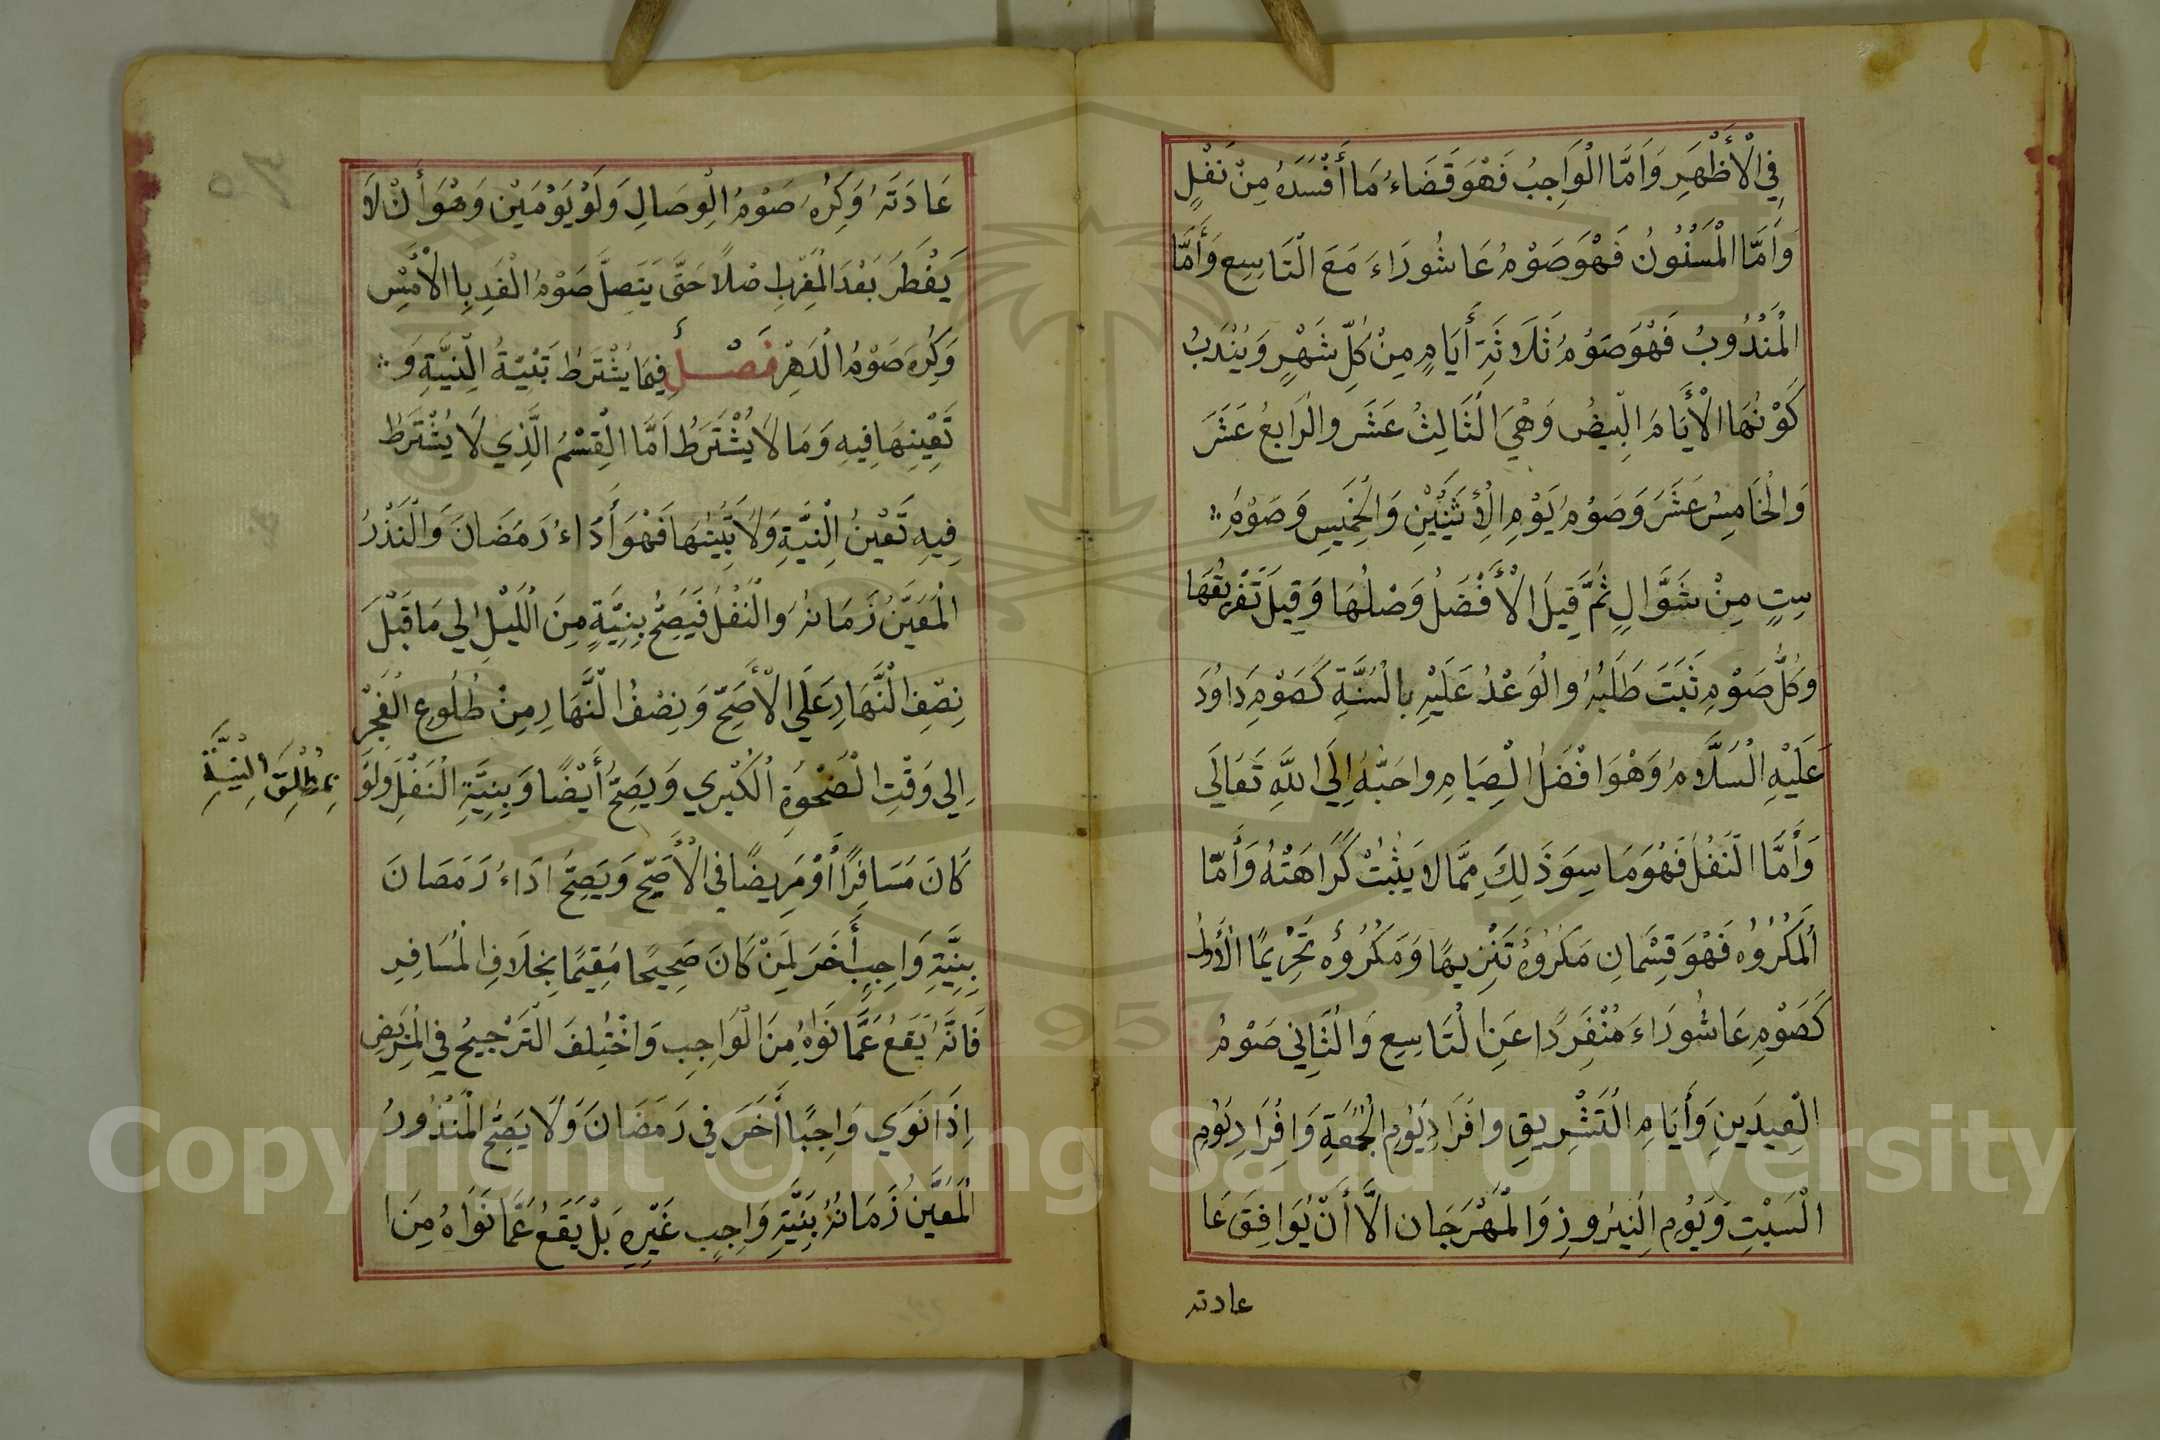 فِي الْأَظْهَرِ وَاَمَّا الْوَاجِبُ فَهْوَ قَضَاءُ مَا أَفْسَدَهُ مِنْ نَفْلٍ
وَاَمَّا الْمَسْنُونُ فَهْوَ صَوْمُ عَاشُورَاءَ مَعَ الْتَاسِعِ وَأَمَّا
الْمَنْدُوبُ فَهْوَ صَوْمُ ثَلَاثَةِ أَيَامٍ مِنْ كُلِّ شَهْرٍ وَيُنْدَبُ
كَوْنُهَا الْأَيَامَ الْبِيضُ وَهْيَ الْثَالِثُ عَشَرَ والْرَابِعُ عَشَرَ
وَالْخَامِسُ عَشَرَ وَصَوْمُ يَوْمِ الْأِثْنَيْنِ وَالْخَمِيسِ وَصَوْمُ
سِتٍ مِنْ شَوَّالٍ ثُمَّ قِيلَ الْأَفْضَلُ وَصْلُهَا وَقِيلَ تَفْرِيقُهَا
وَكُلُّ صَوْمٍ ثَبَتَ طَلَبُهُ والْوَعْدُ عَلَيْهِ بِالْسُنَّةِ كَصَوْمِ دَاوُدَ
عَلَيْهِ الْسَلَّامُ وَهْوَ افْضَلُ الْصِيَامِ واحَبُّهُ اِلَى اللَّهِ تَعَالَى
وَأَمَّا الْنَفْلُ فَهُوَ مَا سِوَ ذَلِكَ مِمَّا لا يَثْبُتْ كَرَاهَتُهُ وَأَمّا
اَلْمَكْرُوُه فَهْوَ قِسْمَانِ مَكْرُوهُ تَنْزِيهًا وَمَكْرُوُه تَحْرِيْمًا الْأَولُ
كَصَوْمِ عَاشُورَاءَ مُنْفَرِدًا عَنِ الْتَاسِعِ وَالْثَانِي صَوْمُ
الْعِيدَيْنِ وَأَيَامِ الْتَشْرِيقِ وافْرَادِ يَوْمِ الْجُمْعَةِ وَاِفْرَادِ يَوْمِ
الْسَبْتِ وَيَوْمِ الْنَيْرُوزِ وَالْمَهْرَجَانِ الَّا أَنْ يُوَافِقَ عَا
عادته
عَادَتَهُ وَكَرِهُ صَوْمُ الْوِصَالِ وَلَوْ يَوْمَيْنِ وَهْوَ أَنْ لَا
يَفْطَرَ بَعْدَ الْمَغْرِبِ اصْلًا حَتَّى يَتَصِلَّ صَوْمُ الْغَدِ بِالْأَمْسِ
وَكُرِهَ صَوْمُ الْدَهْرِ فَصْلٌ فِيمَا يُشْتَرَطُ تَبْيِتُهُ الْنِيَّةِ وَ
تَعْيِنِهَا فِيهِ وَمَا لَا يُشْتَرَطُ اَمَّا الْقِسْمُ الَّذِي لَا يُشْتَرَطُ
فِيهِ تَعْيِنُ الْنِيَّةِ وَلَا تَبْيِتُهَا فَهْوَ أَدَاءُ رَمَضَانَ وَالْنَذْرُ
الْمُعَيَّنُ زَمَانُهُ وَالْنَفْلُ فَيَصِحُّ بِنِيَّةٍ مِنَ الْلَيْلِ اِلي مَا قَبْلَ
نِصْفِ الْنَّهَارِ عَلَي الْأَصَحِّ وَنِصْفُ الْنَّهَارِ مِنْ طُلُوعِ الْفَجْرِ
اِلي وَقْتِ الْضَحْوَةِ الْكُبْرِي وَيَصِحُّ أَيْضًا وَبِنِيَّةِ الْنَفْلِ وَلَوْ
بِمُطْلَقِ الْنِيَّةِ
كَانَ مَسَافِرًا أَوْ مَرِيضًا فِي الْأَصَحِّ وَيَصِحُّ ادَاءُ رَمَضانَ
بِنِيَّةِ وَاجِبٍ أَخَرَ لِمَنْ كَانَ صَحِيحًا مُقِيمًا بِخِلَافِ الْمُسَافِرِ
فَانَّهُ يَقَعُ عَمَّا نَوَاهُ مِنَ الْوَاجِبِ وَاخْتُلِفَ الْتَرْجِيحُ فِي الْمَرِيَضِ
اِذَا نَوَي وَاجِبًا أَخَرَ فِي رَمَضَانَ وَلَا يَصِحُّ الْمَنْذُورُ
الْمُعَيَّنُ زَمَانُهُ بِنِيَّةِ وَاجِبٍ غَيْرِهِ بَلْ يَقَعُ عَمَّا نَوَاهُ مِنَ ا
Copyright © King Saud University
1957